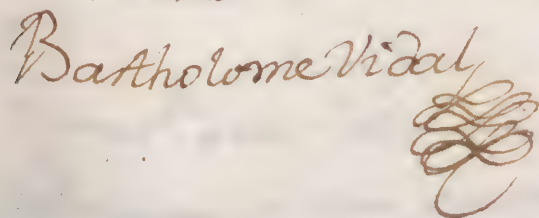 Bartholome Vidal